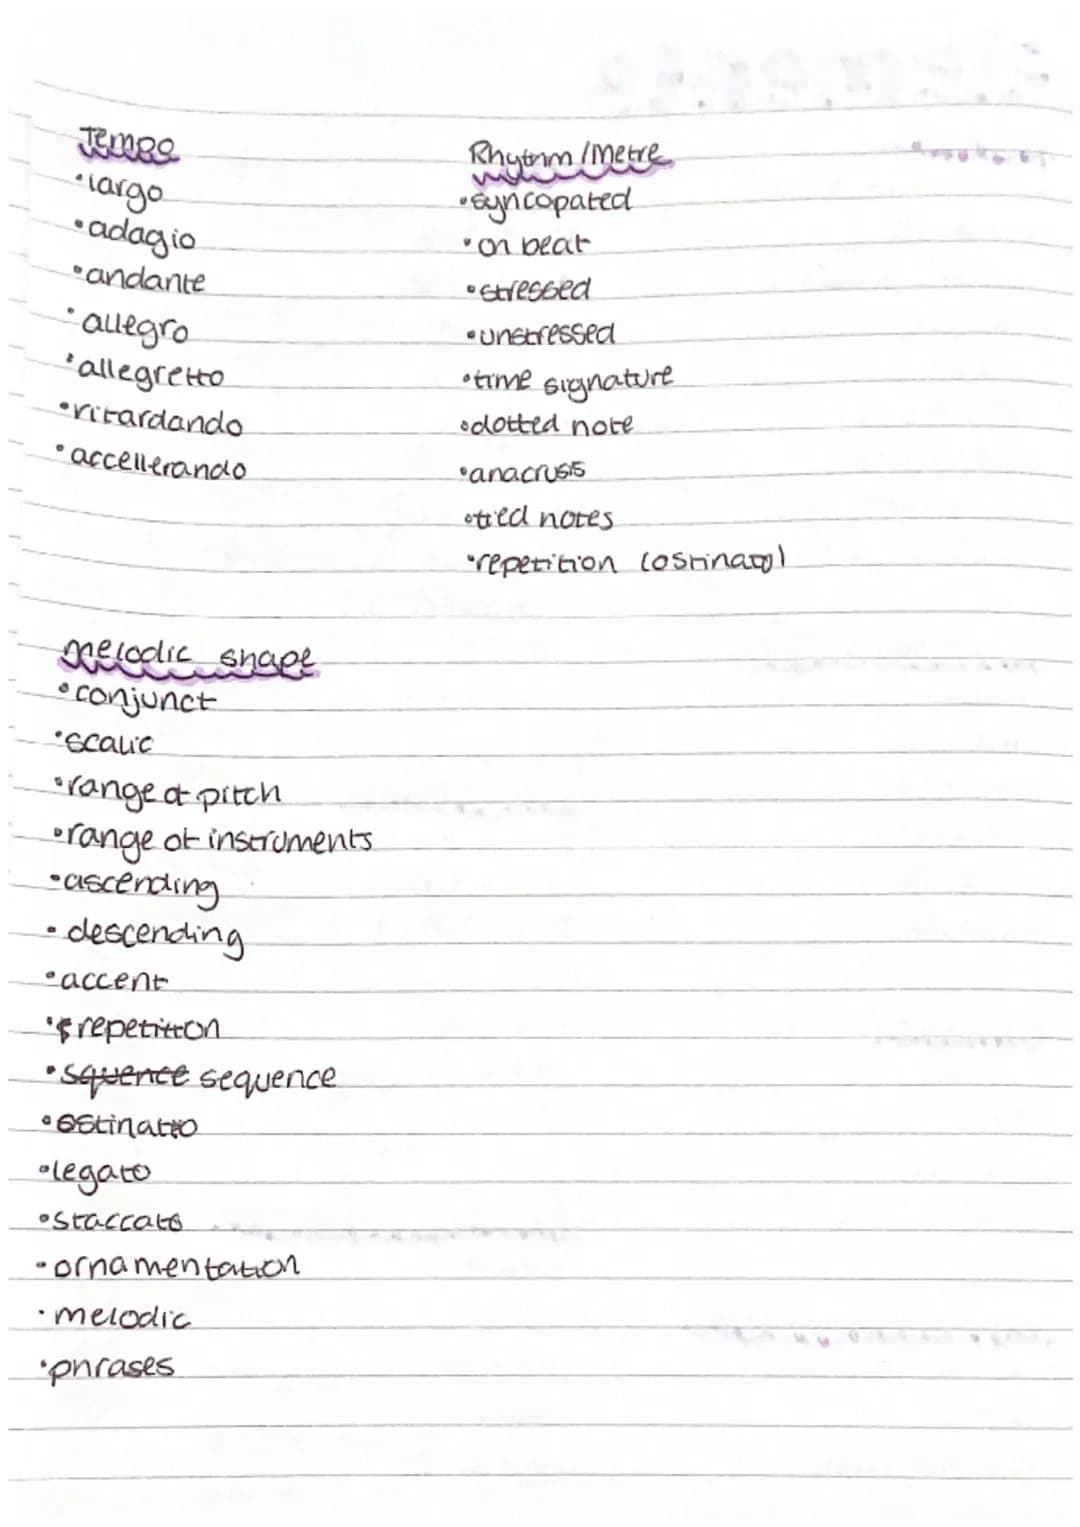 Tempo
•largo
•adagio
•andante
•allegro
•allegretto
•ritardando
•accellerando
Rhythm/Metre
•syncopated
•on beat
•stressed
•unstressed
•time signature
•dotted note
•anacrusis
•tied notes
•repetition (ostinato)
melodic shape
•conjunct
•scalic
•range of pitch
•range of instruments
•ascending
•descending
•accent
•repetition
•squence sequence
•ostinato
•legato
•staccato
•ornamentation
•melodic
•phrases